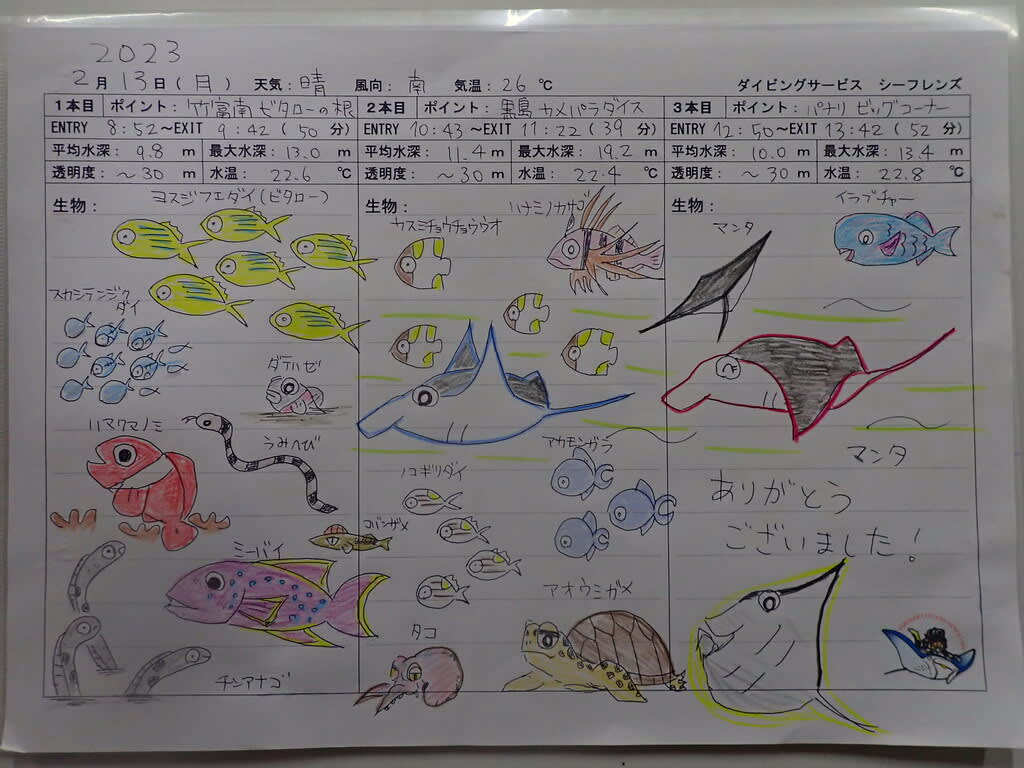 2023
2月13日(月) 天気:晴 風向:南 気温:26℃ ダイビングサービス シーフレンズ
1本目 ポイント:竹富南ビタローの根
ENTRY 8:52～EXIT 9:42(50分)
平均水深:9.8m 最大水深:13.0m
透明度:～30m 水温:22.6℃
生物:
ヨスジフエダイ(ビタロー)
スカシテンジク
ダイ
ダテハゼ
ハマクマノミ
うみへび
コバンザメ
ミーバイ
チンアナゴ
2本目 ポイント:黒島 カメパラダイス
ENTRY 10:43～EXIT 11:22(39分)
平均水深:11.4m 最大水深:19.2m
透明度:～30m 水温:22.4℃
生物:
ハナミノカサゴ
カスミチョウチョウウオ
アカモンガラ
ノコギリダイ
アオウミガメ
タコ
3本目 ポイント:パナリ ビッグコーナー
ENTRY 12:50～EXIT 13:42(52分)
平均水深:10.0m 最大水深:13.4m
透明度:～30m 水温:22.8℃
生物:
イラブチャー
マンタ
マンタ
ありがとう
ございました!